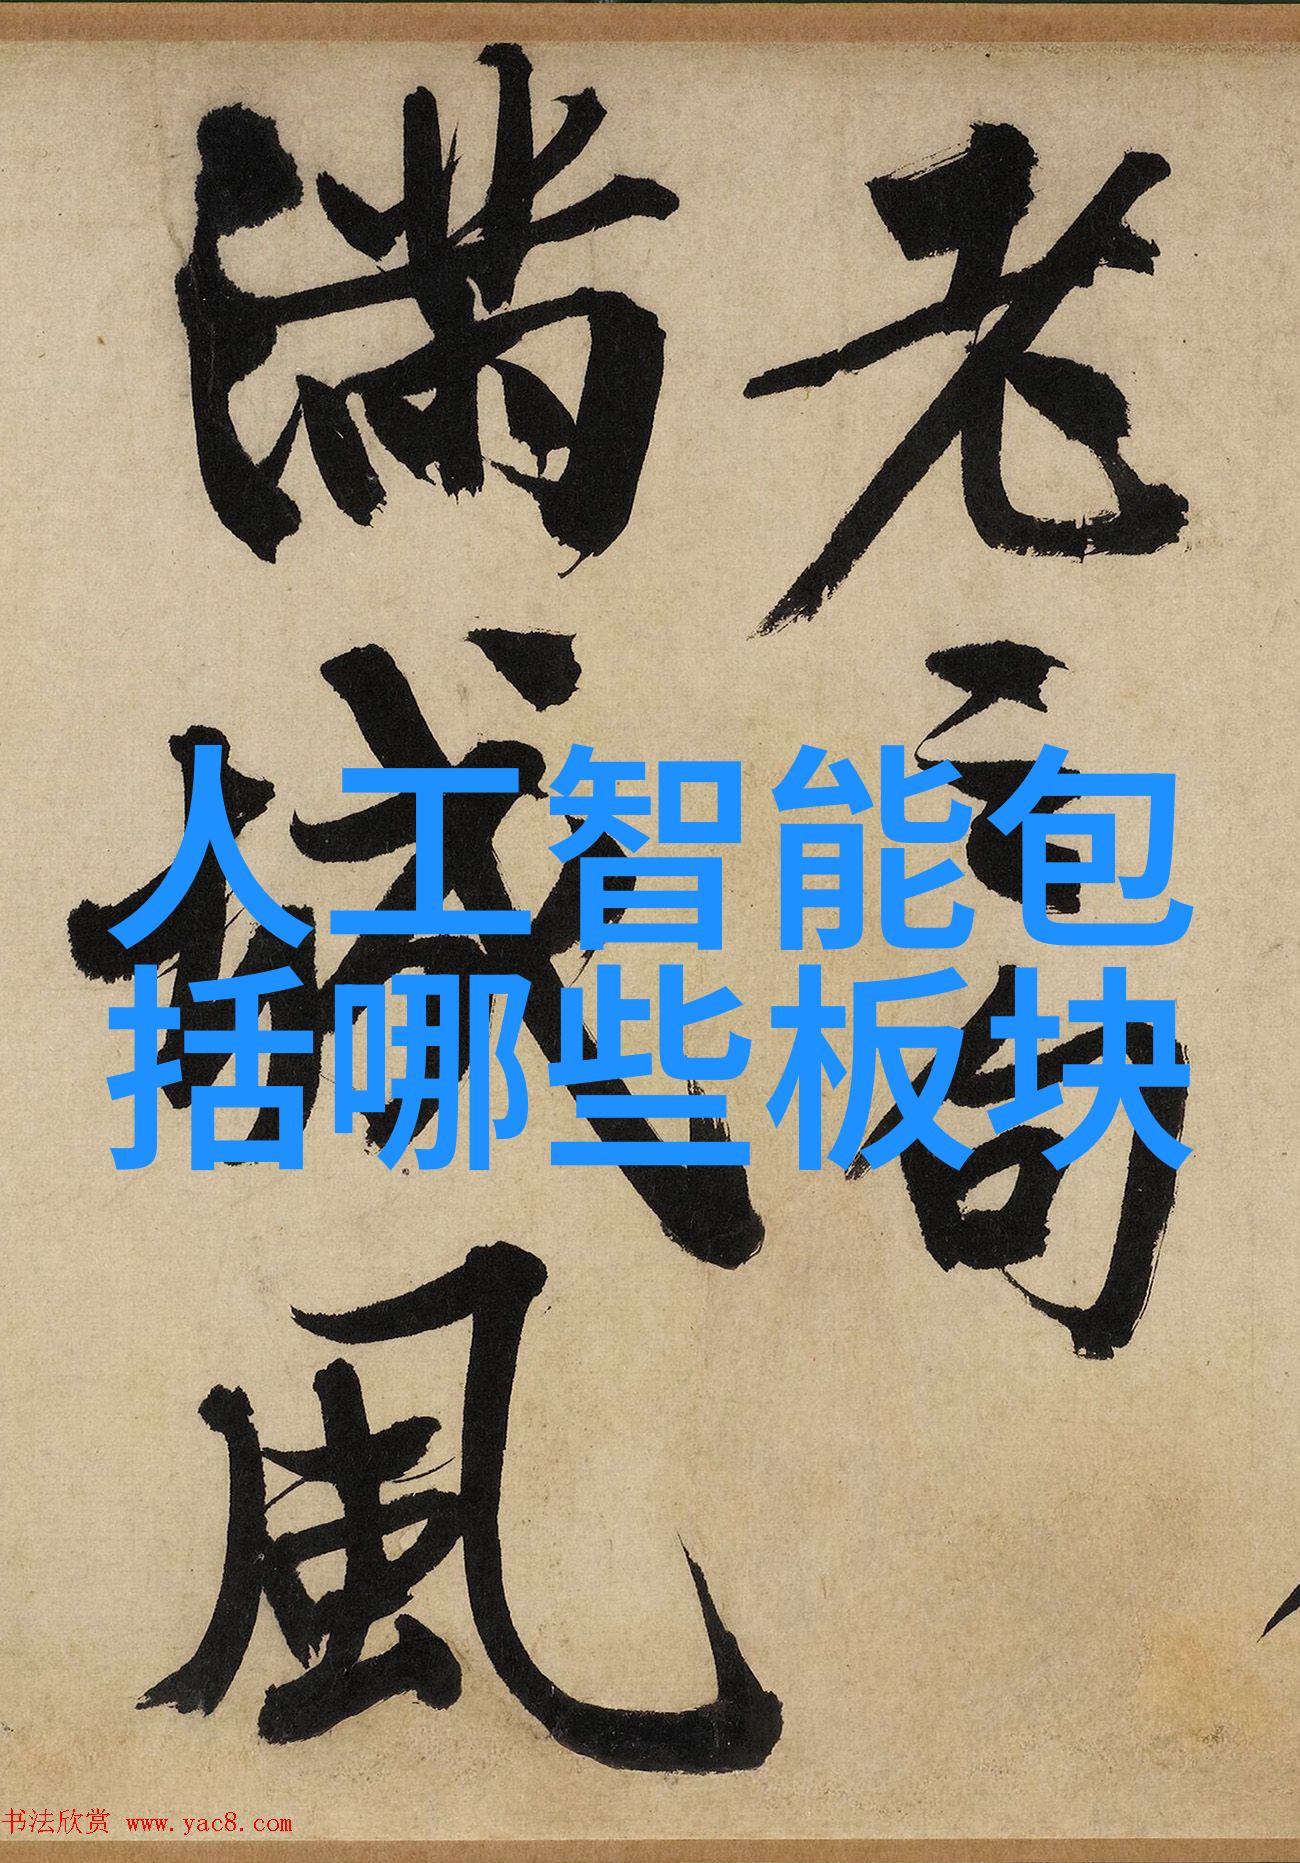 老句
滿城風
人工智能包
括哪些板块
书法欣赏 www.yac8.com